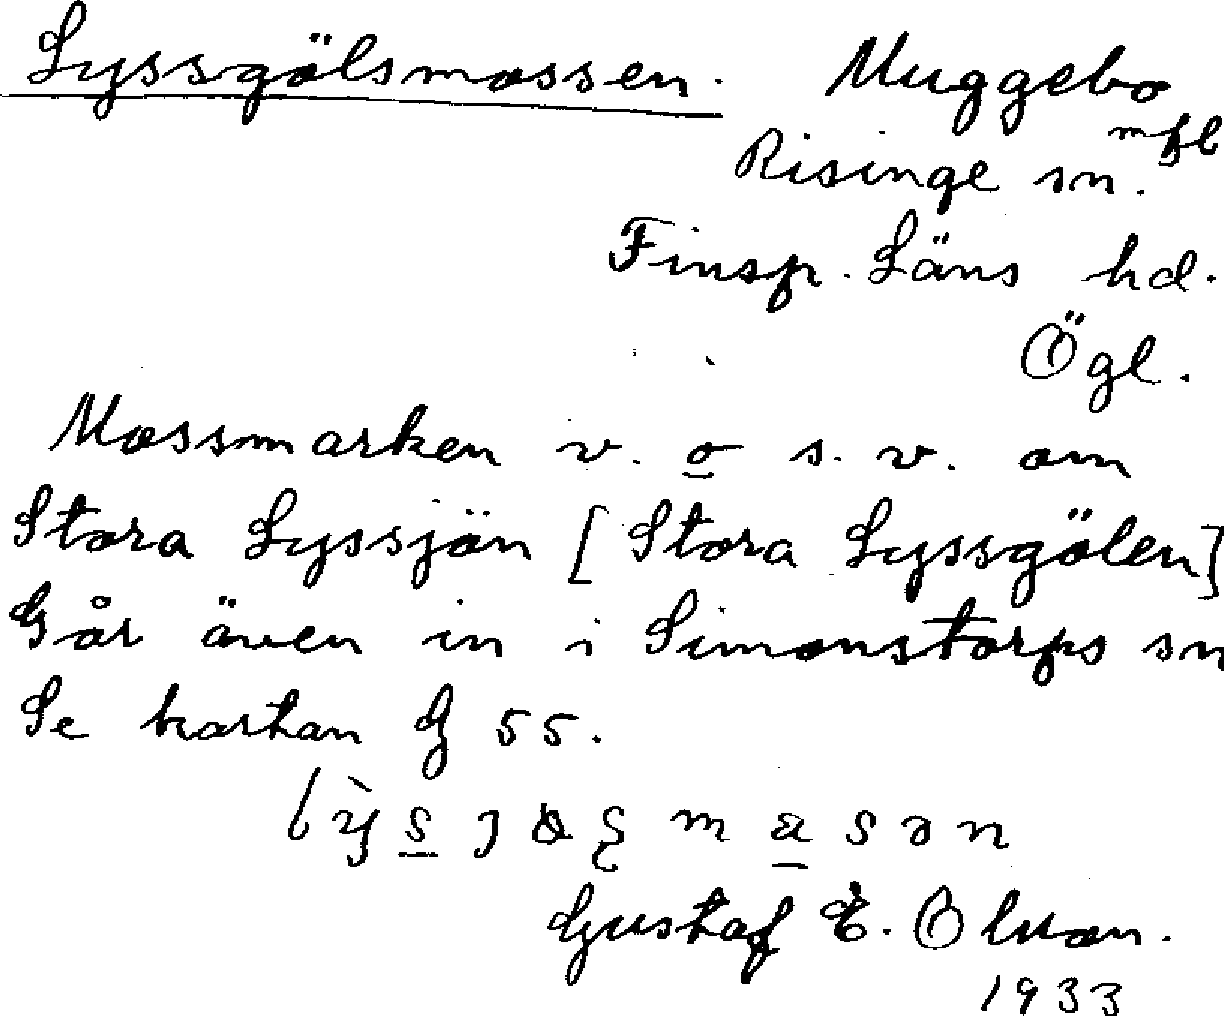 Lyssgölsmossen. Muggebo
mfl
Risinge sn.
Finsp. Läns hd.
Ögl.
Mossmarken v. o s. v. om
Stora Lyssjön [Stora Lyssgölen]
Går även in i Simonstorps sn
Se kartan G 55.
Gustaf E.
1933